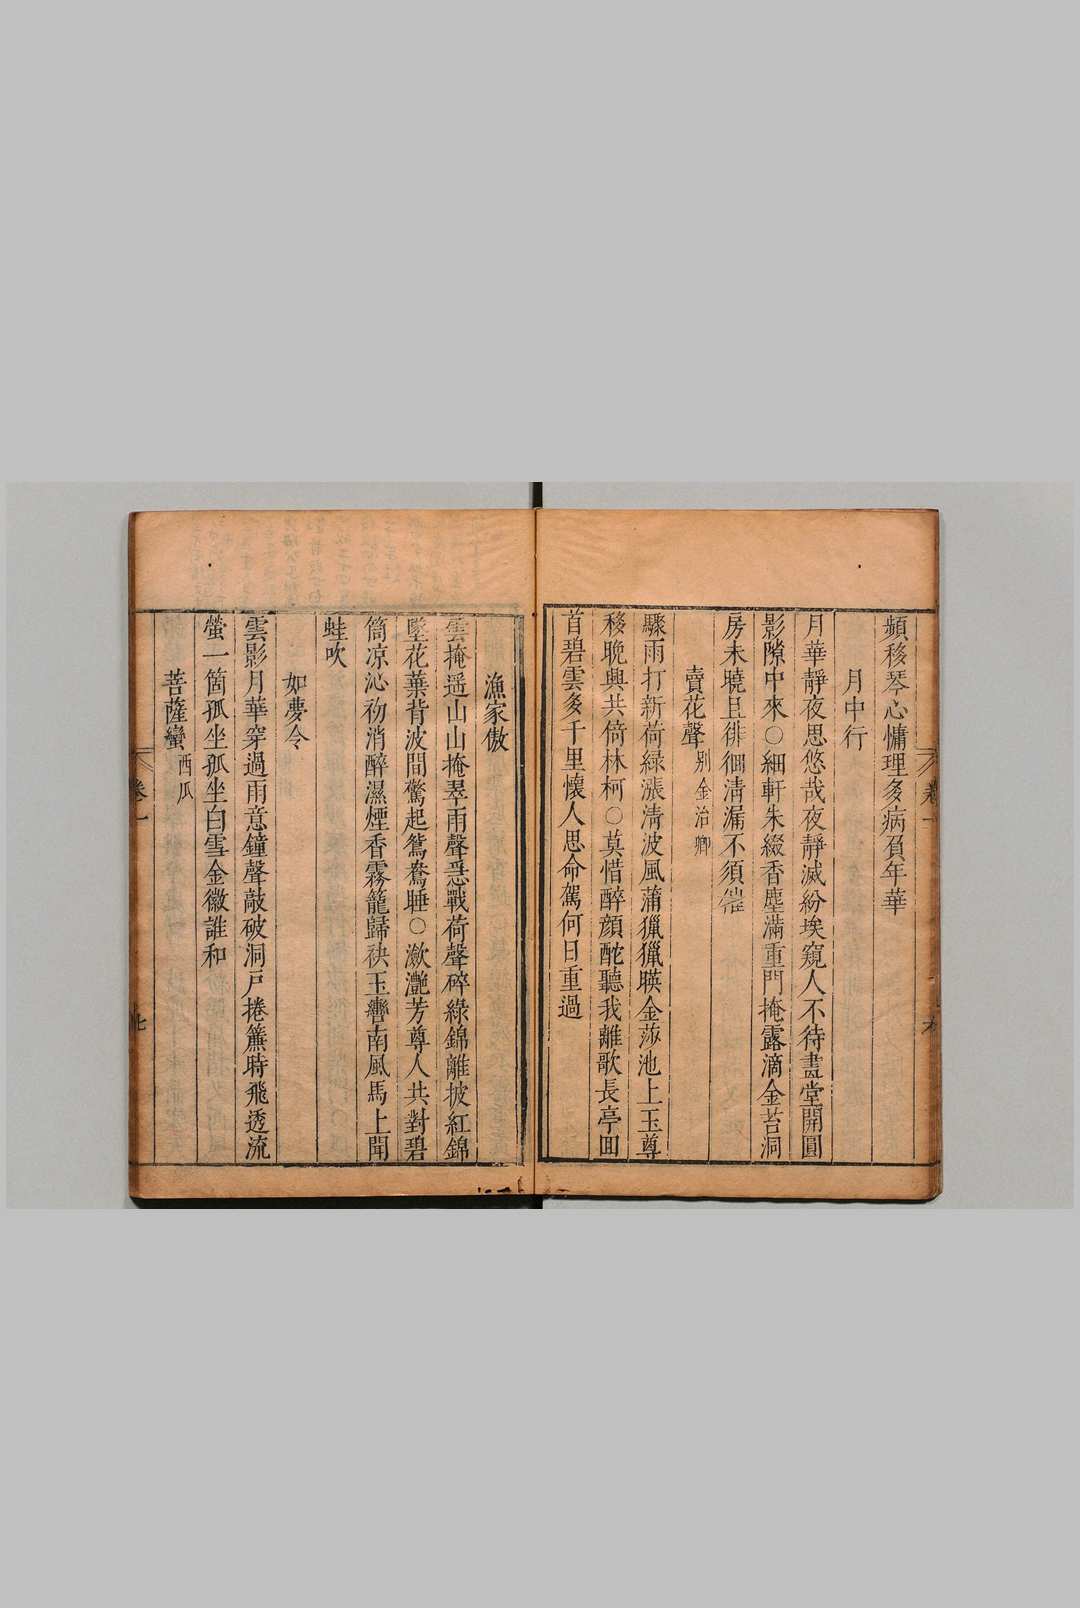 頻移琴心慵理多病負年華
月中行
月華靜夜思悠哉夜靜滅紛埃窺人不待畫堂開圓
影隙中來○細軒朱綴香塵滿重門掩露滴金苔洞
房未曉且徘徊清漏不須催
賣花聲 別金治卿
驟雨打新荷緑漲清波風蒲獵獵暎金莎池上玉尊
移晚興共倚林柯○莫惜醉顔酡聽我離歌長亭回
首碧雲多千里懷人思命駕何日重過
卷一
漁家傲
雲掩遥山山掩翠雨聲悉戰荷聲碎綠錦離披紅錦
墜花葉背波間驚起鴛鴦睡○瀲灧芳尊人共對碧
筒凉沁礽消醉濕煙香霧籠歸袂玉轡南風馬上聞
蛙吹
如夢令
雲影月華穿過雨意鐘聲敲破洞戸捲簾時飛透流
螢一箇孤坐孤坐白雪金徽誰和
菩薩蠻 西瓜
卷一